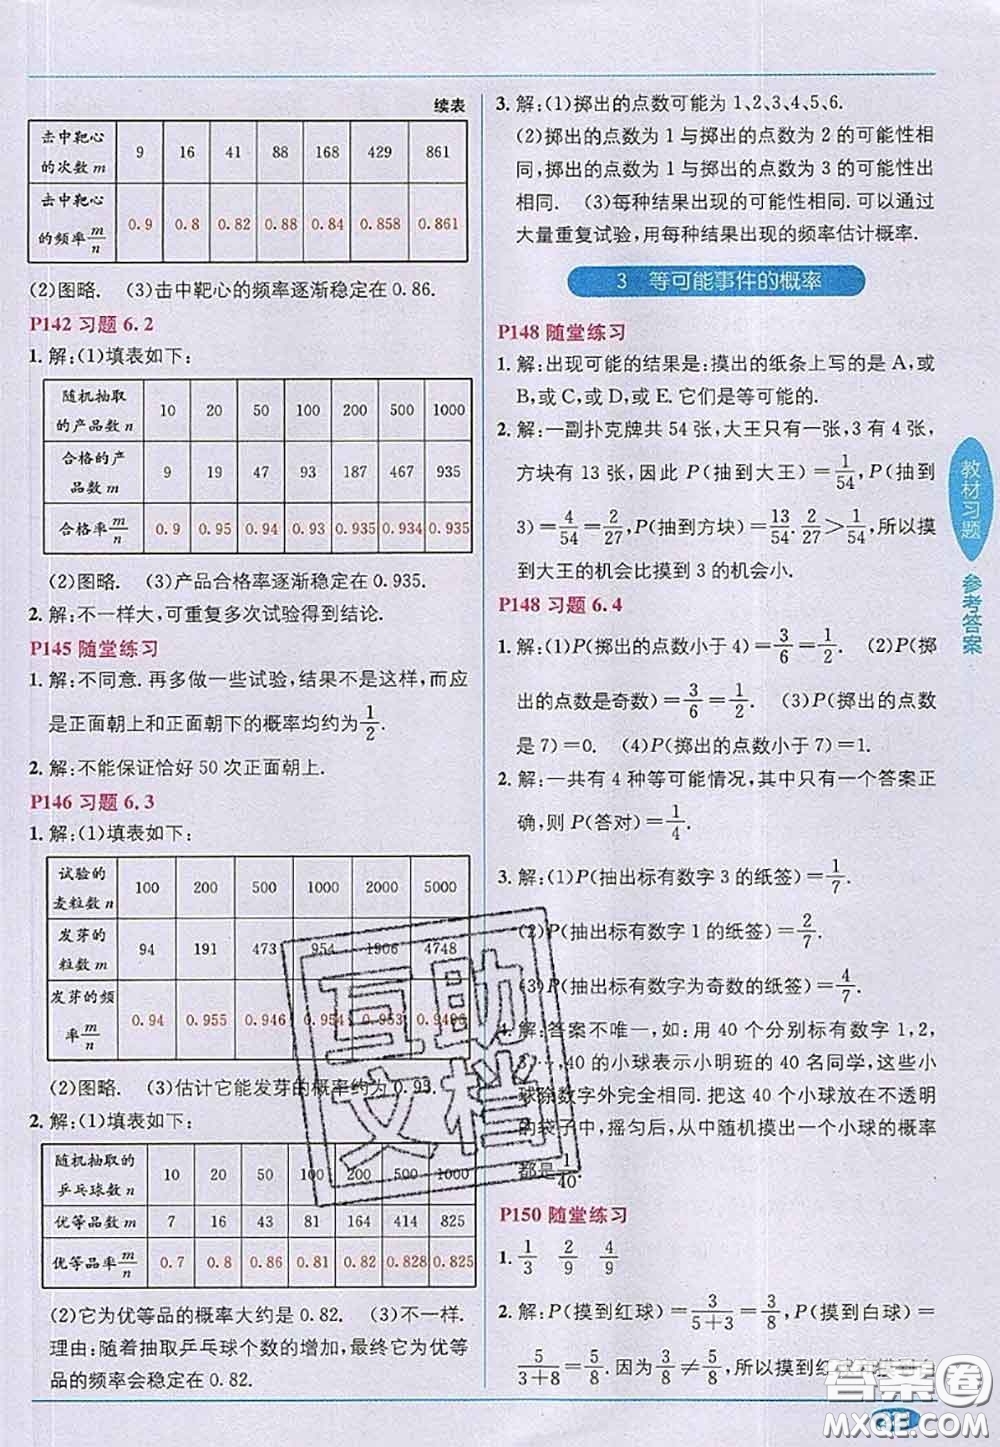 续表
击中靶心的次数 m 9 16 41 88 168 429 861
击中靶心的频率 m/n 0.9 0.8 0.82 0.88 0.84 0.858 0.861
(2)图略. (3)击中靶心的频率逐渐稳定在 0.86.
P142 习题 6.2
1. 解:(1)填表如下:
随机抽取的产品数 n 10 20 50 100 200 500 1000
合格的产品数 m 9 19 47 93 187 467 935
合格率 m/n 0.9 0.95 0.94 0.93 0.935 0.934 0.935
(2)图略. (3)产品合格率逐渐稳定在 0.935.
2. 解:不一样大,可重复多次试验得到结论.
P145 随堂练习
1. 解:不同意.再多做一些试验,结果不是这样,而应
是正面朝上和正面朝下的概率均约为 1/2.
2. 解:不能保证恰好 50 次正面朝上.
P146 习题 6.3
1. 解:(1)填表如下:
试验的麦粒数 n 100 200 500 1000 2000 5000
发芽的粒数 m 94 191 473 954 1906 4748
发芽的频率 m/n 0.94 0.955 0.946 0.954 0.953 0.9496
(2)图略. (3)估计它能发芽的概率约为 0.93.
2. 解:(1)填表如下:
随机抽取的乒乓球数 n 10 20 50 100 200 500 1000
优等品数 m 7 16 43 81 164 414 825
优等品率 m/n 0.7 0.8 0.86 0.81 0.82 0.828 0.825
(2)它为优等品的概率大约是 0.82. (3)不一样.
理由:随着抽取乒乓球个数的增加,最终它为优等
品的频率会稳定在 0.82.
3. 解:(1)掷出的点数可能为 1、2、3、4、5、6.
(2)掷出的点数为 1 与掷出的点数为 2 的可能性相
同,掷出的点数为 1 与掷出的点数为 3 的可能性也
相同. (3)每种结果出现的可能性相同.可以通过
大量重复试验,用每种结果出现的频率估计概率.
3 等可能事件的概率
P148 随堂练习
1. 解:出现可能的结果是:摸出的纸条上写的是 A,或
B,或 C,或 D,或 E. 它们是等可能的.
2. 解:一副扑克牌共 54 张,大王只有一张,3 有 4 张,
方块有 13 张,因此 P(抽到大王)=1/54,P(抽到
3)=4/54=2/27,P(抽到方块)=13/54. 2/27>1/54,所以摸
到大王的机会比摸到 3 的机会小.
P148 习题 6.4
1. 解:(1)P(掷出的点数小于 4)=3/6=1/2. (2)P(掷
出的点数是奇数)=3/6=1/2. (3)P(掷出的点数
是 7)=0. (4)P(掷出的点数小于 7)=1.
2. 解:一共有 4 种等可能情况,其中只有一个答案正
确,则 P(答对)=1/4.
3. 解:(1)P(抽出标有数字 3 的纸签)=1/7.
(2)P(抽出标有数字 1 的纸签)=2/7.
(3)P(抽出标有数字为奇数的纸签)=4/7.
4. 解:答案不唯一,如:用 40 个分别标有数字 1,2,
3,…,40 的小球表示小明班的 40 名同学,这些小
球除数字外完全相同.把这 40 个小球放在不透明
的袋子中,摇匀后,从中随机摸出一个小球的概率
都是 1/40.
P150 随堂练习
1. 1/3 2/9 4/9
2. 解:P(摸到红球)=3/(5+3)=3/8,P(摸到白球)=
5/(3+8)=5/8. 因为 3/8≠5/8,所以摸到红
教材习题
参考答案
互助
文档
答案圈
MXQE.COM